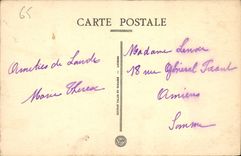 65
CARTE POSTALE
Amitiés de Lourdes
Marie Thérèse
Madame Lenoir
18 rue Général
Amiens
Somme